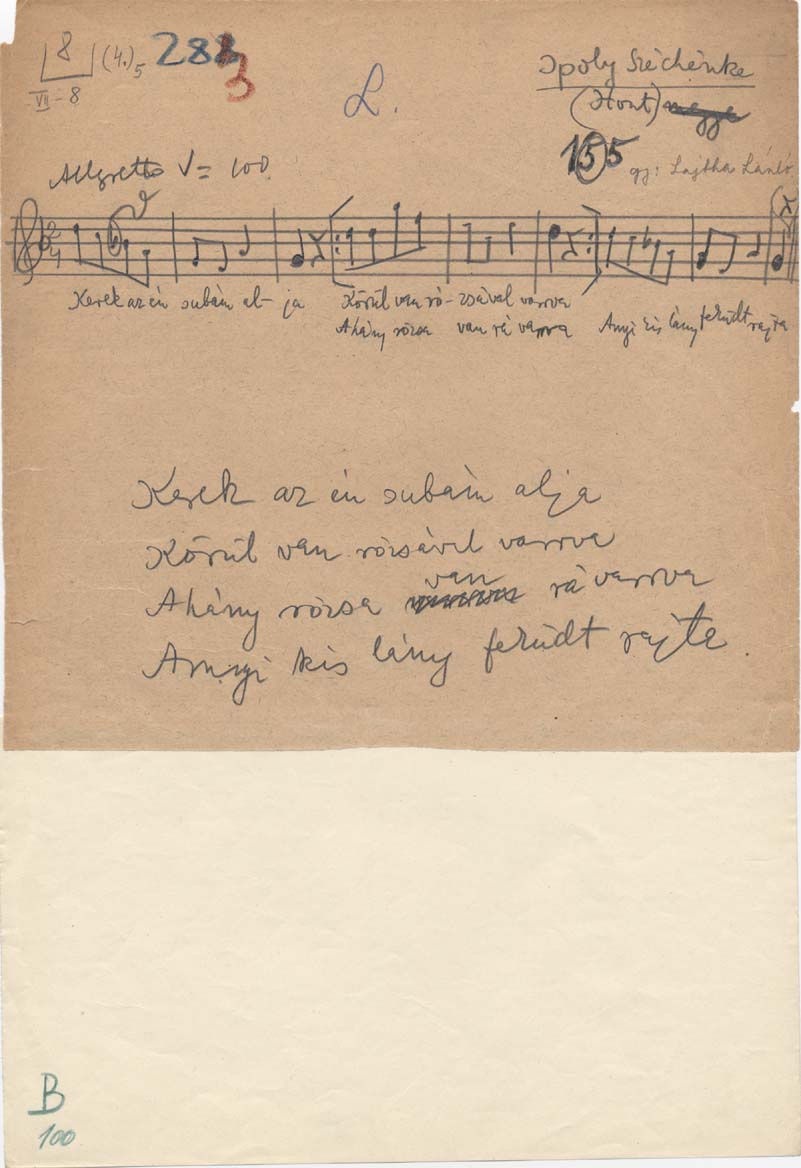 8 (4.)5 288 3
VII-8
L.
Ipoly Szécsénke
(Hont) megye
155
gy: Lajtha László
Allegretto = 100
Kerek az én subám al- ja Körül van ró- zsával varrva
Ahány rózsa van rá varrva Anyi kis lány feküdt rajta
Kerek az én subám alja
Körül van rózsával varrva
Ahány rózsa van rá varrva
Annyi kis lány feküdt rajta.
B
100